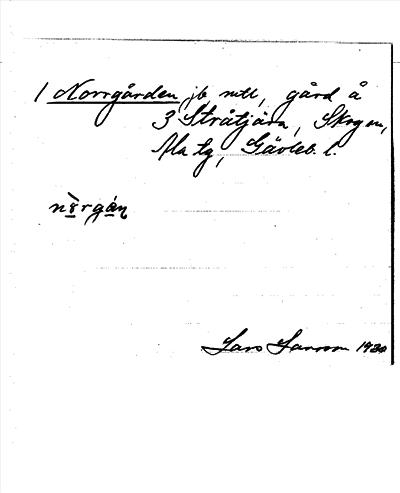 1 Norrgården, jb mtl, gård å
3 Stråtjära, Skogen,
Ala sg, Gävleb. l.
Lars Larsson 1930